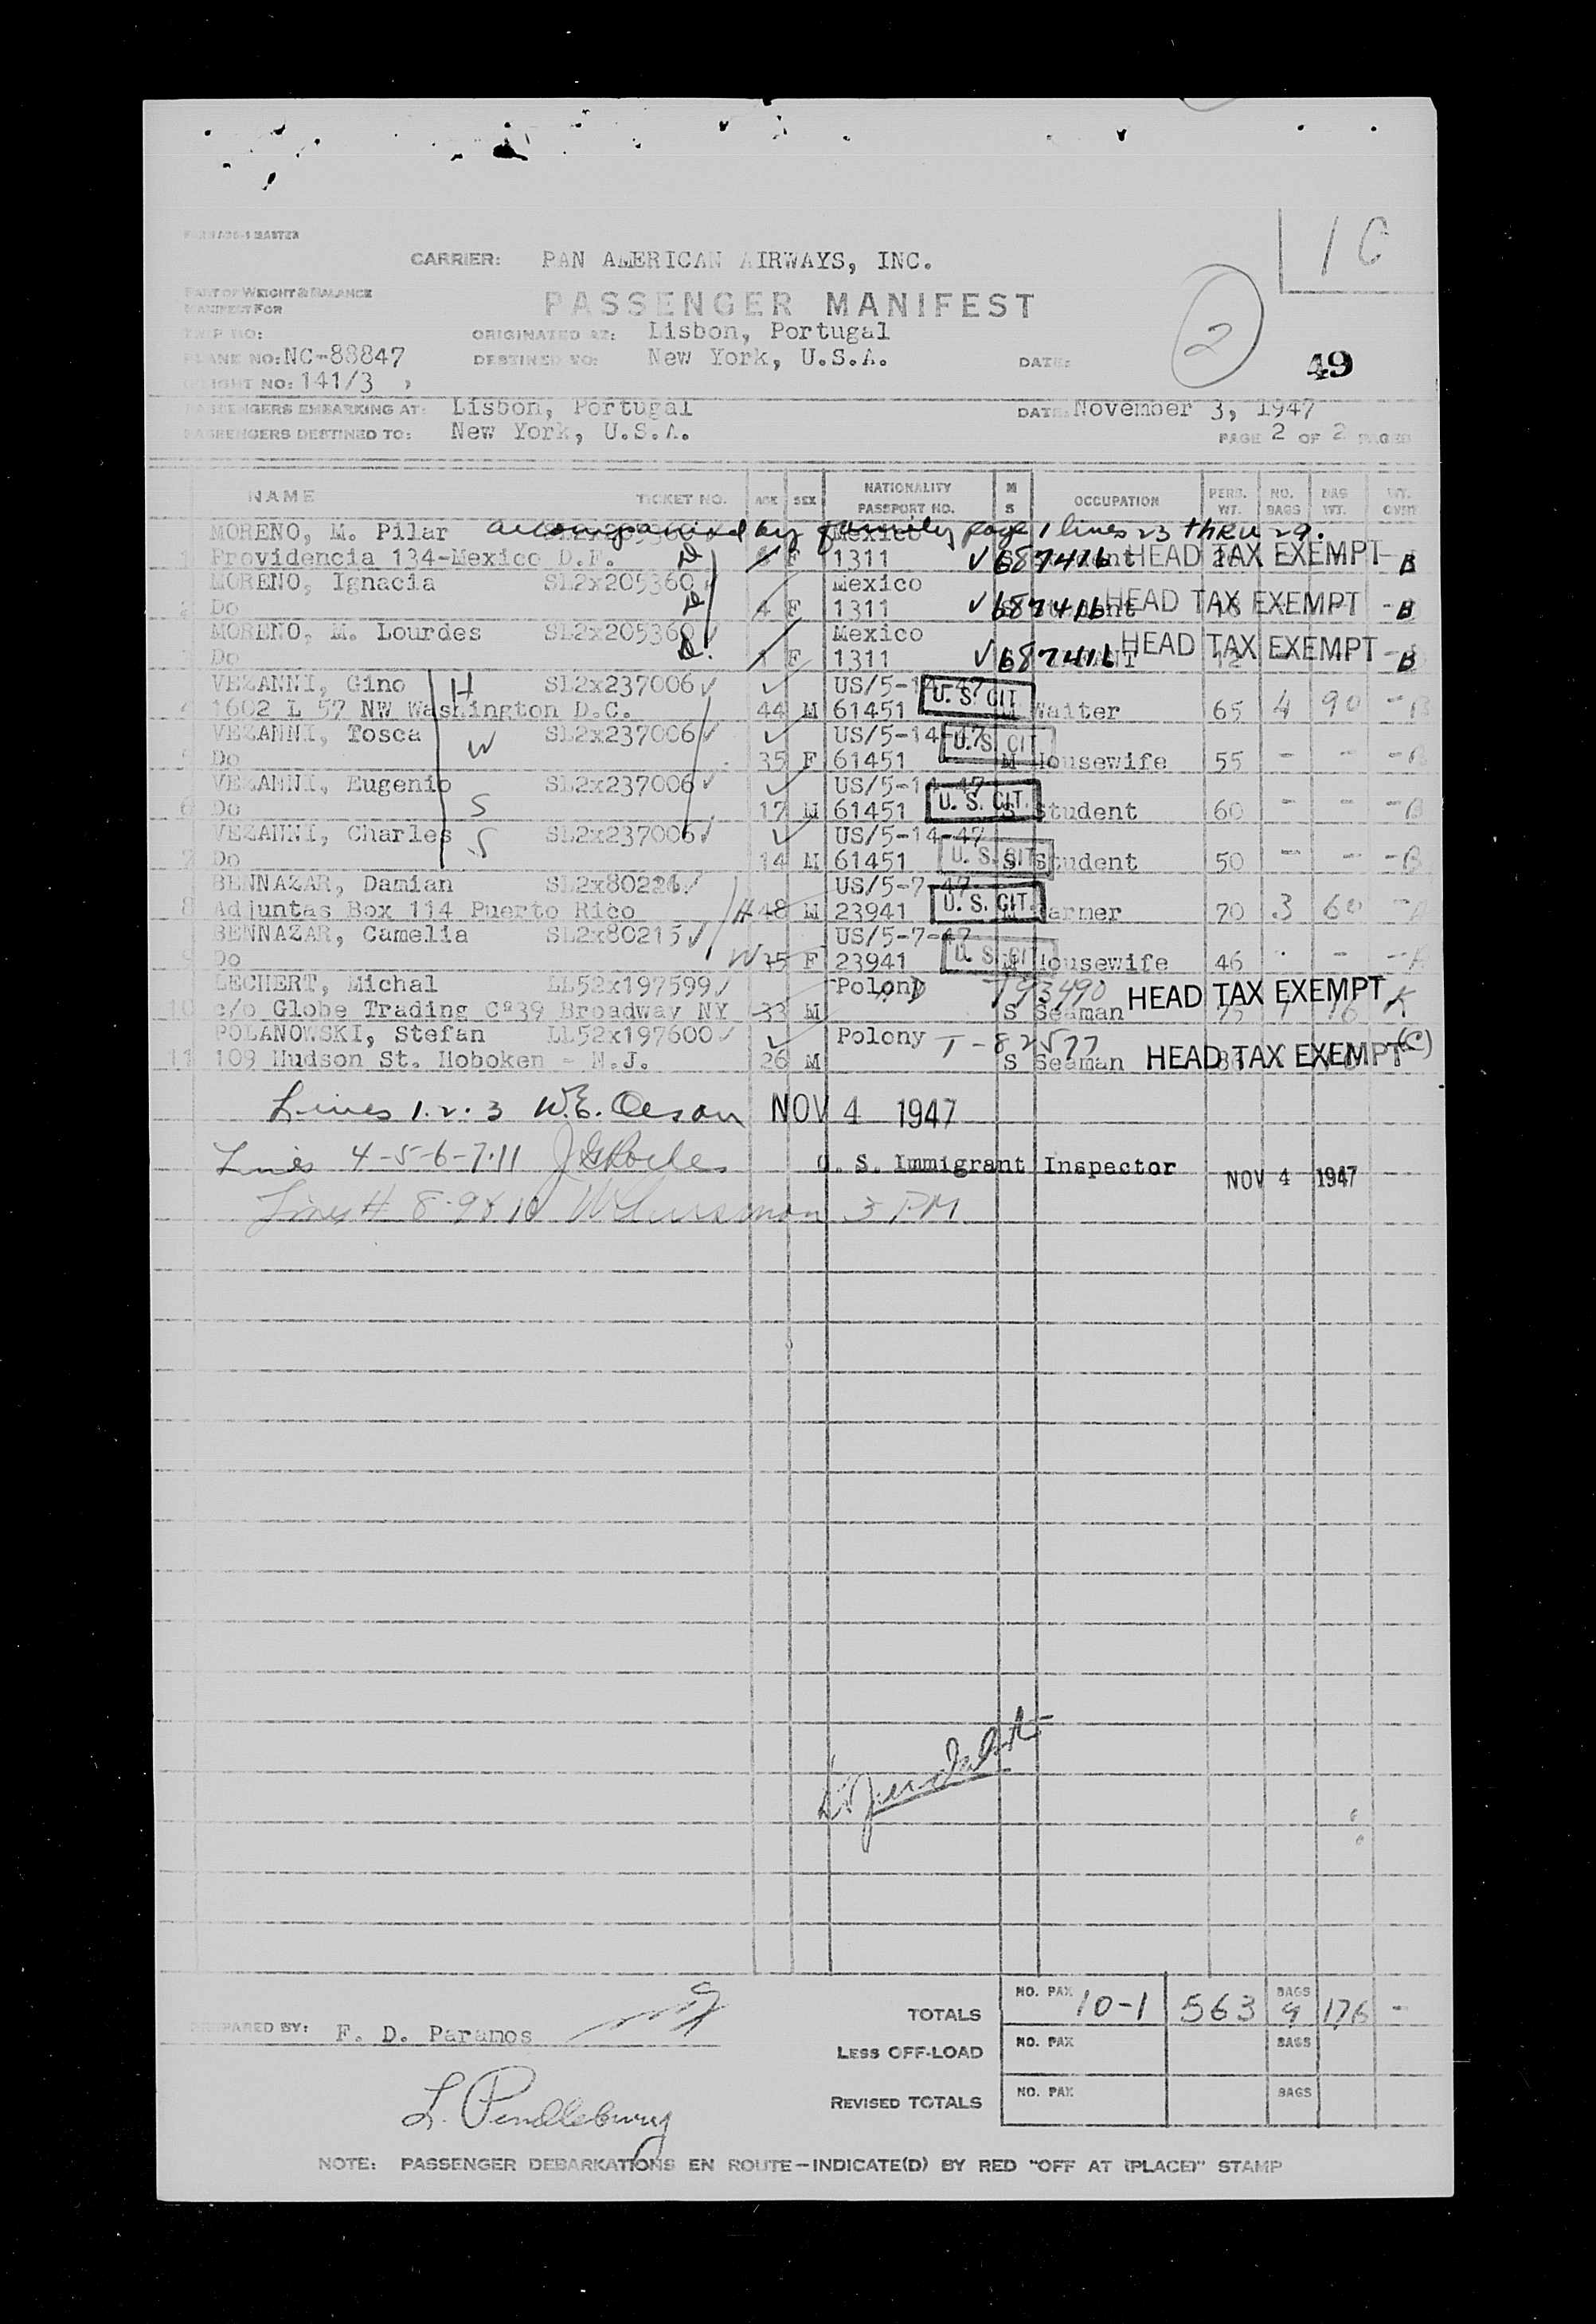 1 C
CARRIER: PAN AMERICAN AIRWAYS, INC.
PART OF WEIGHT & BALANCE
MANIFEST FOR
PASSENGER MANIFEST
2
TRIP NO: ORIGINATED AT: Lisbon, Portugal
PLANE NO: NC-88847 DESTINED TO: New York, U.S.A. DATE: 49
FLIGHT NO: 141/3
PASSENGERS EMBARKING AT: Lisbon, Portugal DATE: November 3, 1947
PASSENGERS DESTINED TO: New York, U.S.A. PAGE 2 OF 2 PAGES
NAME TICKET NO. AGE SEX NATIONALITY PASSPORT NO. M S OCCUPATION PERS. WT. NO. BAGS BAG WT.
MORENO, M. Pilar accompanied by family page 1 lines 23 thru 29. Mexico
1 Providencia 134-Mexico D.F. F 1311 687416 HEAD TAX EXEMPT - B
MORENO, Ignacia SL2x205360 Mexico
2 Do 4 F 1311 687416 HEAD TAX EXEMPT - B
MORENO, M. Lourdes SL2x205360 Mexico
Do 1 F 1311 687416 HEAD TAX EXEMPT B
VEZANNI, Gino H SL2x237006 US/5-14-47
4 1602 L 57 NW Washington D.C. 44 M 61451 U. S. CIT. Waiter 65 4 90 - B
VEZANNI, Tosca W SL2x237006 US/5-14-47
5 Do 35 F 61451 U. S. CIT M Housewife 55 - - - B
VEZANNI, Eugenio SL2x237006 US/5-14-47
6 Do S 17 M 61451 U. S. CIT. S Student 60 - - - B
VEZANNI, Charles S SL2x237006 US/5-14-47
7 Do 14 M 61451 U. S. CIT. S Student 50 - - - B
BENNAZAR, Damian US/5-7-47
8 Adjuntas Box 114 Puerto Rico H 48 M 23941 U. S. CIT. Farmer 70 3 60 -
BENNAZAR, Camelia SL2x80215 US/5-7-47
9 Do W 35 F 23941 U. S. CIT M Housewife 46 - -
LECHERT, Michal LL52x197599 Polony T93490
10 c/o Globe Trading Cº39 Broadway NY 33 M S Seaman HEAD TAX EXEMPT K
POLANOWSKI, Stefan LL52x197600 Polony T-82577
11 109 Hudson St. Hoboken - N.J. 26 M S Seaman HEAD TAX EXEMPT (C)
Lines 1.2.3 W.E. Olson NOV 4 1947
Lines 4-5-6-7-11 U. S. Immigrant Inspector NOV 4 1947
Lines # 8-9&10 3 PM
TOTALS NO. PAX 10-1 563 BAGS 9 176 -
PREPARED BY: F. D. Paramos
LESS OFF-LOAD NO. PAX BAGS
REVISED TOTALS NO. PAX BAGS
L. Pendlebury
NOTE: PASSENGER DEBARKATIONS EN ROUTE—INDICATE(D) BY RED "OFF AT (PLACE)" STAMP